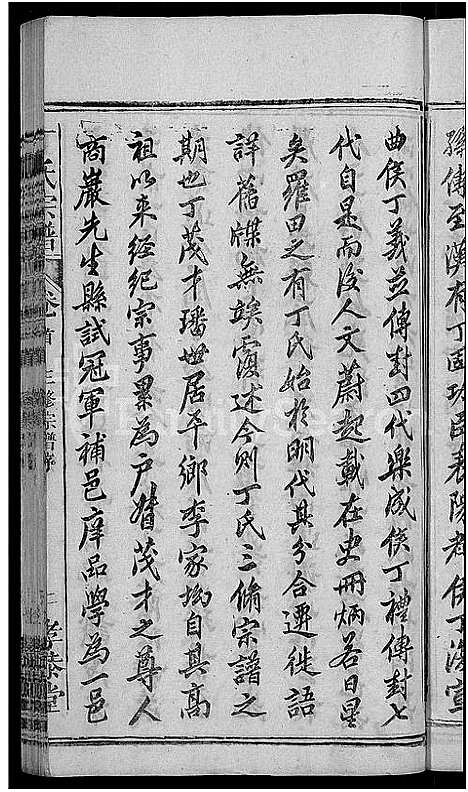 孫傳至漢有丁固功臣表陽都侯丁復宣
曲侯丁義並傳封四代樂成侯丁禮傳封七
代自是而後人文蔚起載在史冊炳若日星
矣羅田之有丁氏始於明代其分合遷徙語
詳舊牒無竢覆述今則丁氏三脩宗譜之
期也丁茂才璠世居平鄉李家坳自其高
祖以來經紀宗事累為戶督茂才之尊人
商巖先生縣試冠軍補邑庠品學為一邑
氏宗譜 卷首 三修宗譜序 二